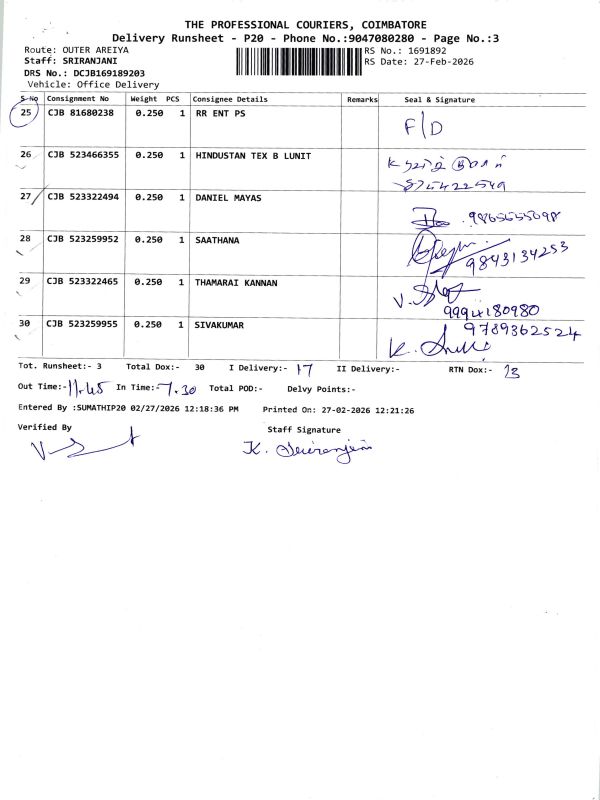 THE PROFESSIONAL COURIERS, COIMBATORE
Delivery Runsheet - P20 - Phone No.:9047080280 - Page No.:3
Route: OUTER AREIYA
RS No.: 1691892
Staff: SRIRANJANI
RS Date: 27-Feb-2026
DRS No.: DCJB169189203
Vehicle: Office Delivery
S No Consignment No Weight PCS Consignee Details Remarks Seal & Signature
25 CJB 81680238 0.250 1 RR ENT PS F/D
26 CJB 523466355 0.250 1 HINDUSTAN TEX B LUNIT
27 CJB 523322494 0.250 1 DANIEL MAYAS
28 CJB 523259952 0.250 1 SAATHANA
9843134253
29 CJB 523322465 0.250 1 THAMARAI KANNAN
9994180980
30 CJB 523259955 0.250 1 SIVAKUMAR 9789362524
Tot. Runsheet:- 3 Total Dox:- 30 I Delivery:- 17 II Delivery:- RTN Dox:- 13
Out Time:- 11.45 In Time:- 7.30 Total POD:- Delvy Points:-
Entered By :SUMATHIP20 02/27/2026 12:18:36 PM Printed On: 27-02-2026 12:21:26
Verified By Staff Signature